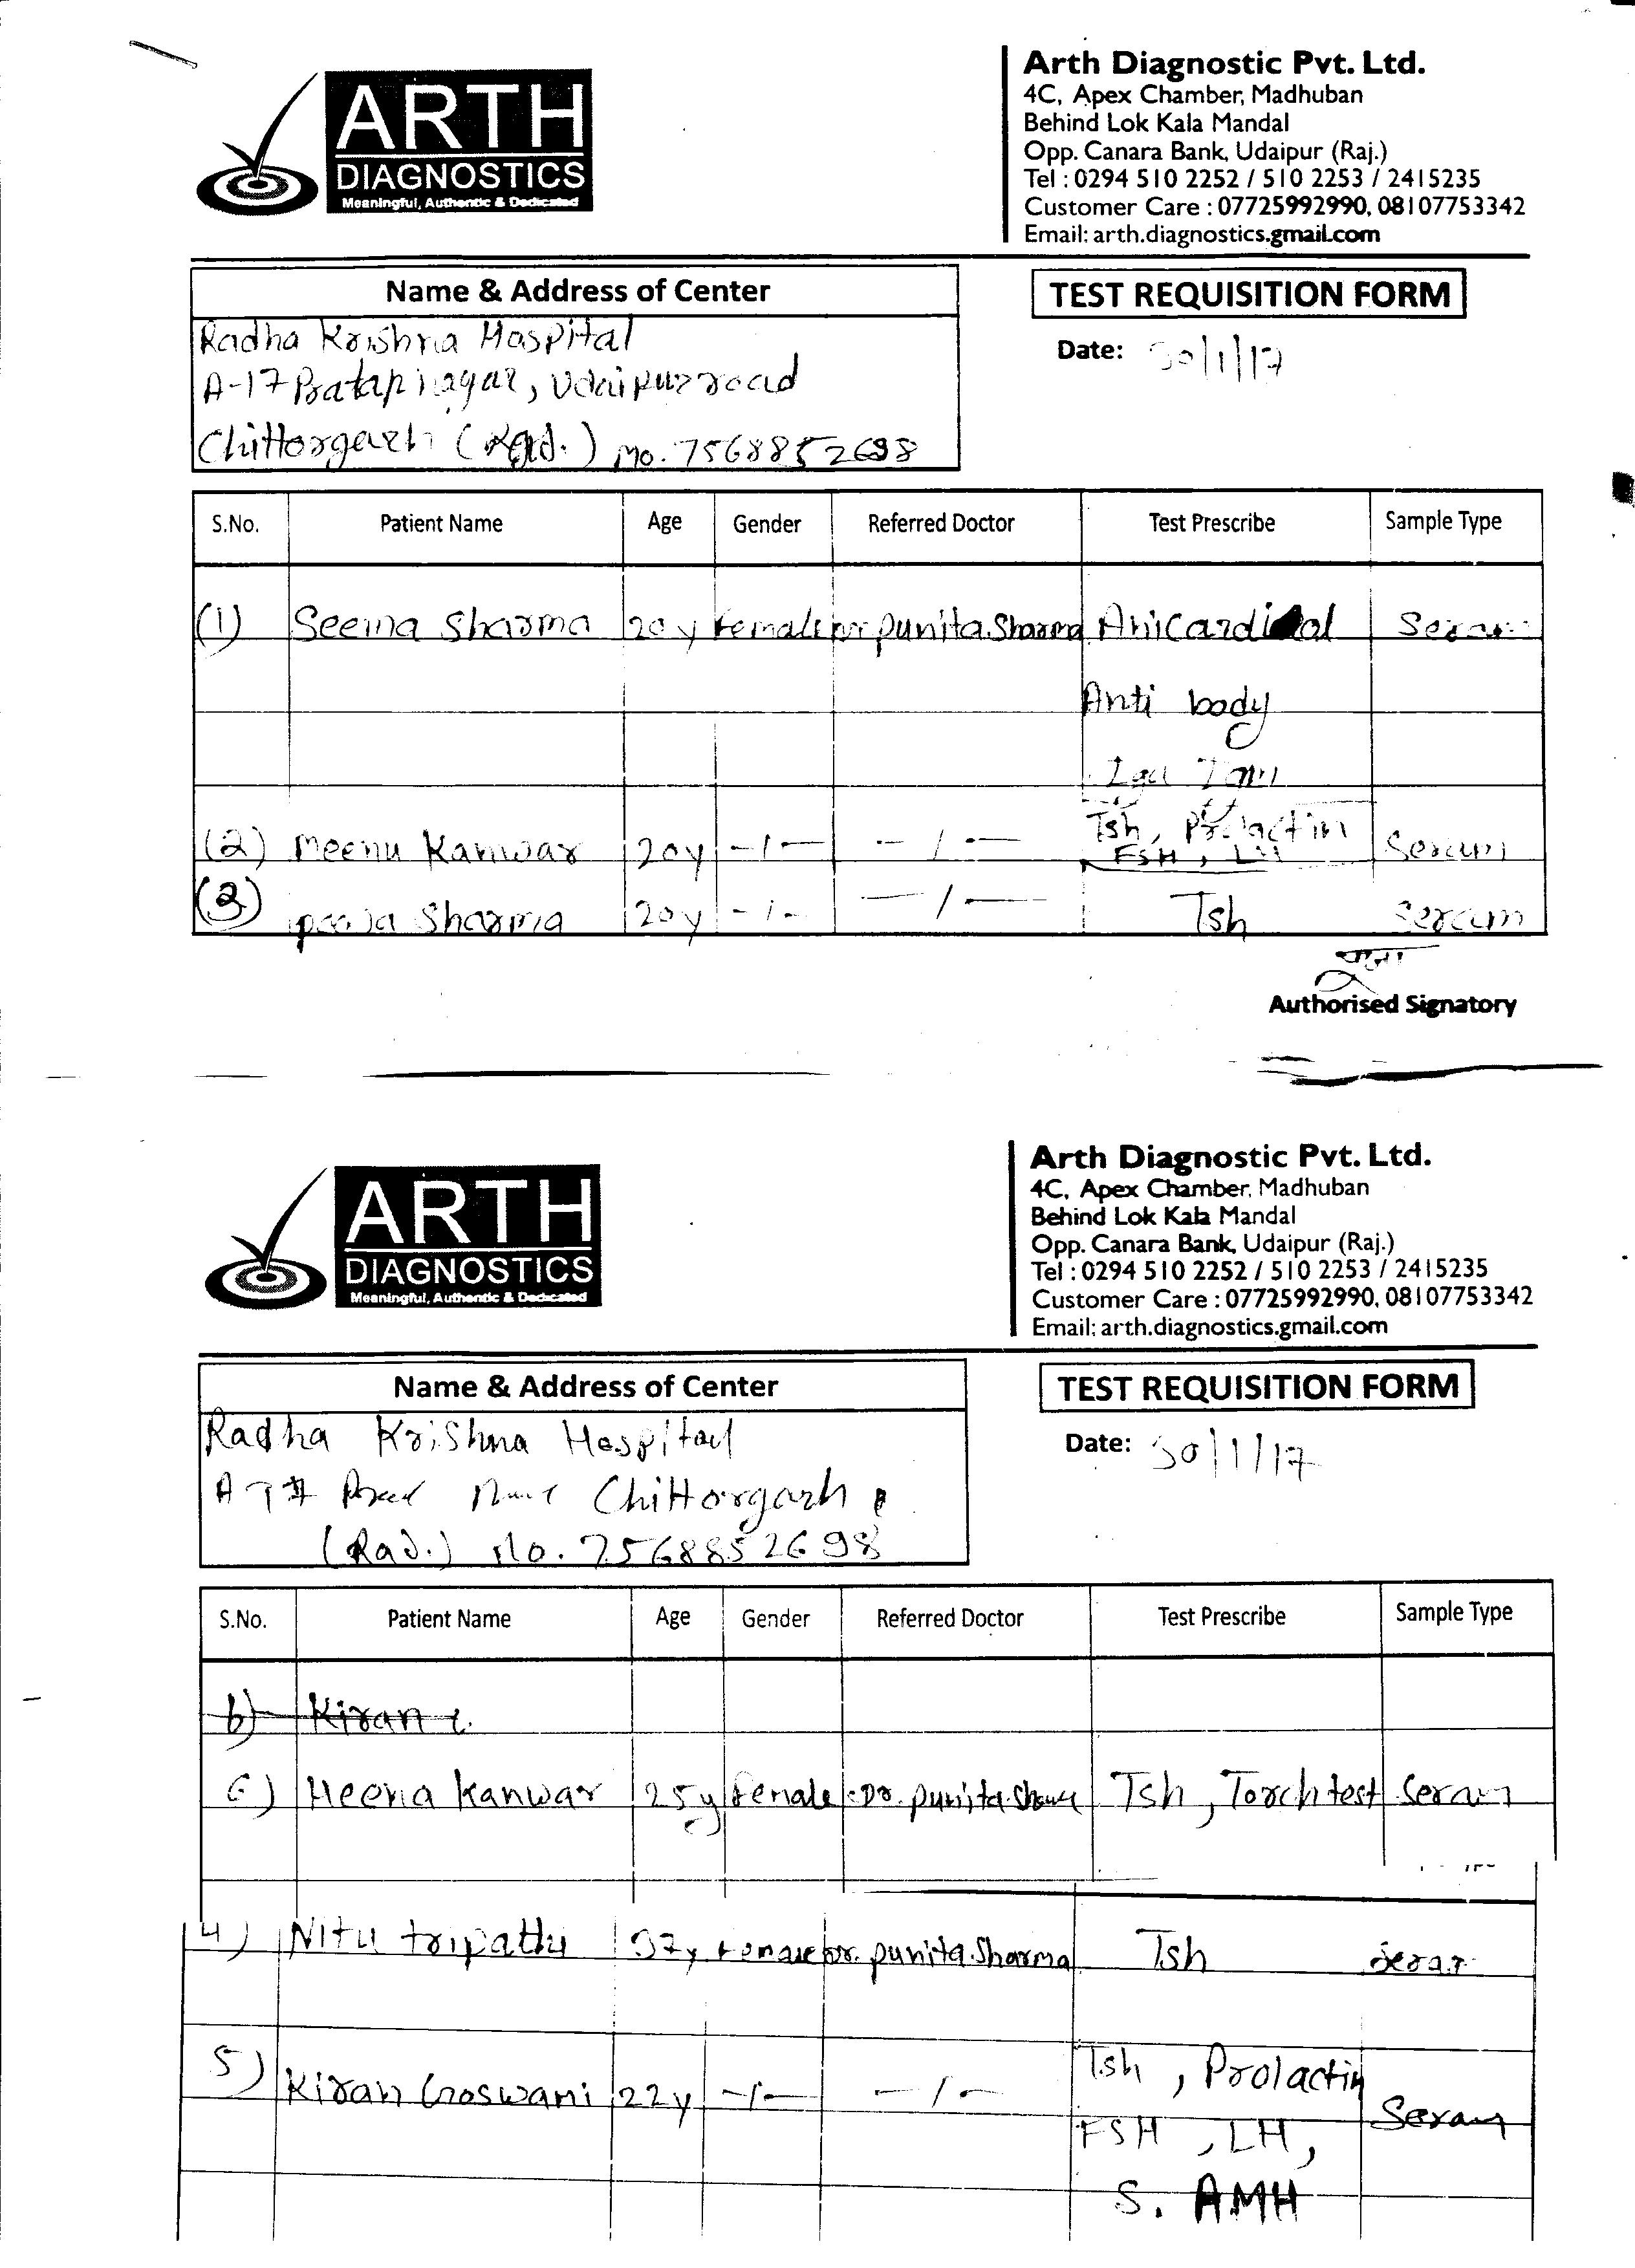 ARTH
DIAGNOSTICS
Meaningful, Authentic & Dedicated
Arth Diagnostic Pvt. Ltd.
4C, Apex Chamber, Madhuban
Behind Lok Kala Mandal
Opp. Canara Bank, Udaipur (Raj.)
Tel : 0294 510 2252 / 510 2253 / 2415235
Customer Care : 07725992990, 08107753342
Email: arth.diagnostics.gmail.com
Name & Address of Center
TEST REQUISITION FORM
Radha Krishna Hospital
Date: 30/1/17
A-17 Pratap nagar, Udaipur road
Chittorgarh (Raj.) Mo. 7568852698
S.No. Patient Name Age Gender Referred Doctor Test Prescribe Sample Type
(1) Seema Sharma 20y female Dr Punita Sharma Anicardiol Seram
Anti body
(2) Meenu Kanwar 20y -/- -/- Tsh, Prolactin Seram
FSH, LH
(3) pooja Sharma 20y -/- -/- Tsh Seram
Authorised Signatory
ARTH
DIAGNOSTICS
Meaningful, Authentic & Dedicated
Arth Diagnostic Pvt. Ltd.
4C, Apex Chamber, Madhuban
Behind Lok Kala Mandal
Opp. Canara Bank, Udaipur (Raj.)
Tel : 0294 510 2252 / 510 2253 / 2415235
Customer Care : 07725992990, 08107753342
Email: arth.diagnostics.gmail.com
Name & Address of Center
TEST REQUISITION FORM
Radha Krishna Hospital
Date: 30/1/17
Chittorgarh
(Raj.) Mo. 7568852698
S.No. Patient Name Age Gender Referred Doctor Test Prescribe Sample Type
6) Kiran
6) Heena Kanwar 25y female Dr. Punita Sharma Tsh, Torch test Seram
4) Nitu tripathi 37y female Dr. Punita Sharma Tsh Seram
5) Kiran Goswami 22y -/- -/- Tsh, Prolactin Seram
FSH, LH,
S. AMH